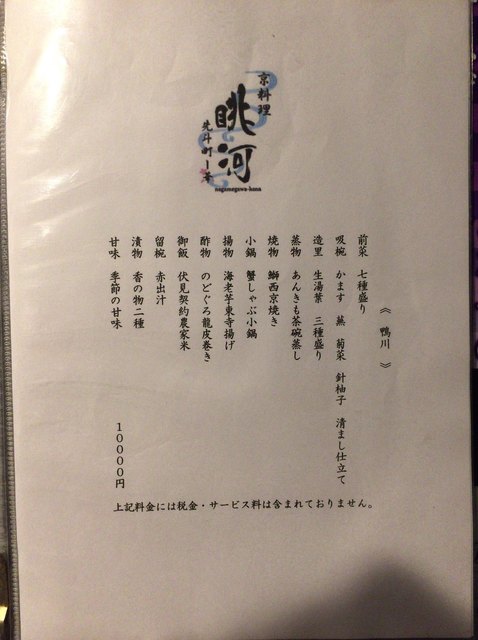 京料理
眺河
先斗町
nagamegawa-hana
《 鴨川 》
前菜 七種盛り
吸椀 かます 蕪 菊菜 針柚子 清まし仕立て
造里 生湯葉 三種盛り
蒸物 あんきも茶碗蒸し
焼物 鰤西京焼き
小鍋 蟹しゃぶ小鍋
揚物 海老芋東寺揚げ
酢物 のどぐろ龍皮巻き
御飯 伏見契約農家米
留椀 赤出汁
漬物 香の物二種
甘味 季節の甘味
10000円
上記料金には税金・サービス料は含まれておりません。